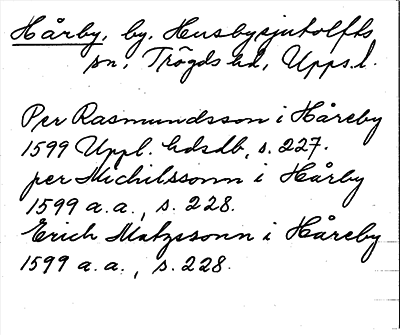 Hårby, by, Husbysjutolfts
sn, Trögds hd, Upps.l.
Per Rasmundsson i Håreby
1599 Uppl. hdsdb, s. 227.
per Michilssonn i Hårby
1599 a.a., s. 228.
Erich Matzssonn i Håreby
1599 a.a., s. 228.